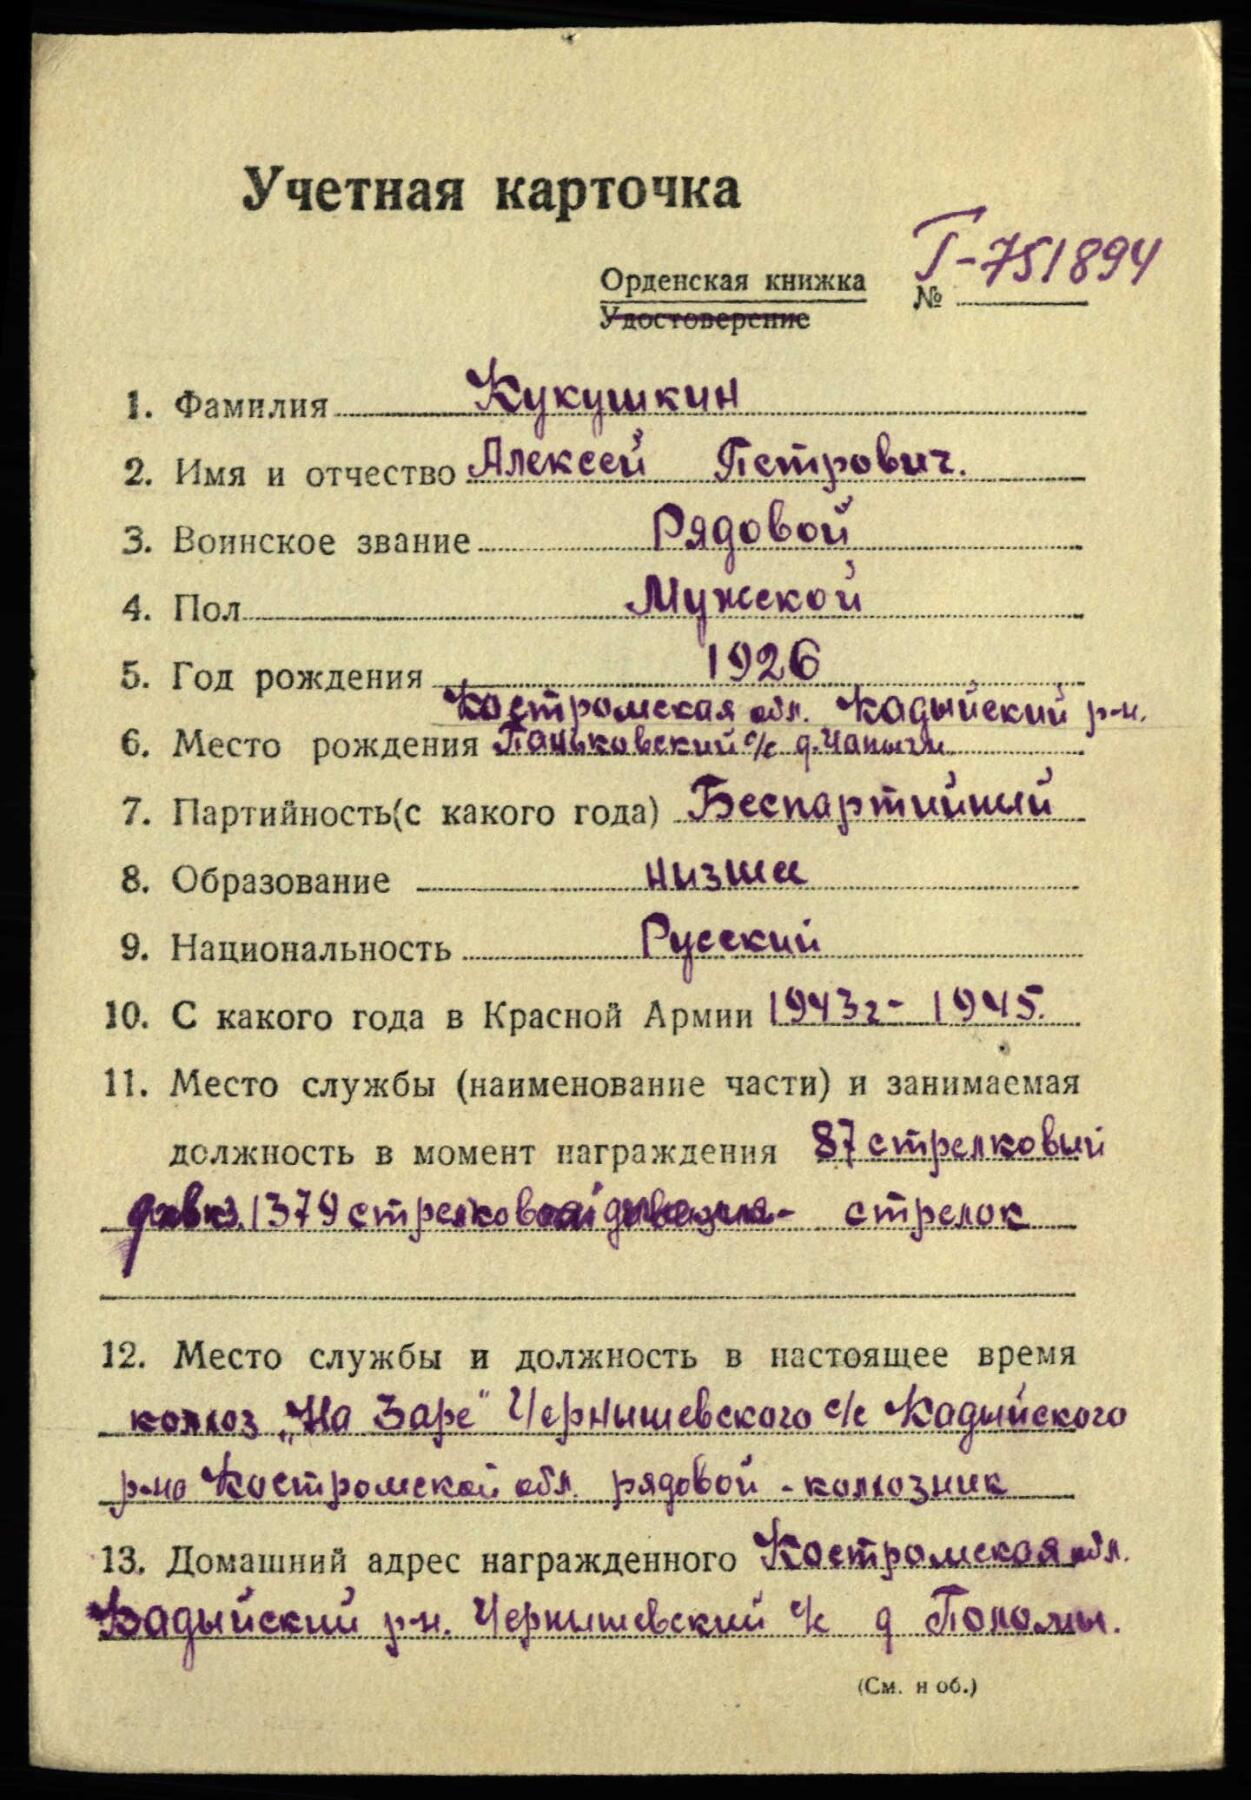 Учетная карточка
Г-751894
Орденская книжка №
Удостоверение
1. Фамилия Кукушкин
2. Имя и отчество Алексей Петрович.
3. Воинское звание Рядовой
4. Пол Мужской
5. Год рождения 1926
Костромская обл. Кадыйский р-н.
6. Место рождения Паньковский с/с д.
7. Партийность(с какого года) Беспартийный
8. Образование низшее
9. Национальность Русский
10. С какого года в Красной Армии 1943г - 1945.
11. Место службы (наименование части) и занимаемая
должность в момент награждения 87 стрелковый
1379 - стрелок
12. Место службы и должность в настоящее время
колхоз „На Заре" Чернышевского с/с Кадыйского
р-на Костромской обл. рядовой - колхозник
13. Домашний адрес награжденного Костромская обл.
Кадыйский р-н. Чернышевский с/с д
(См. н об.)